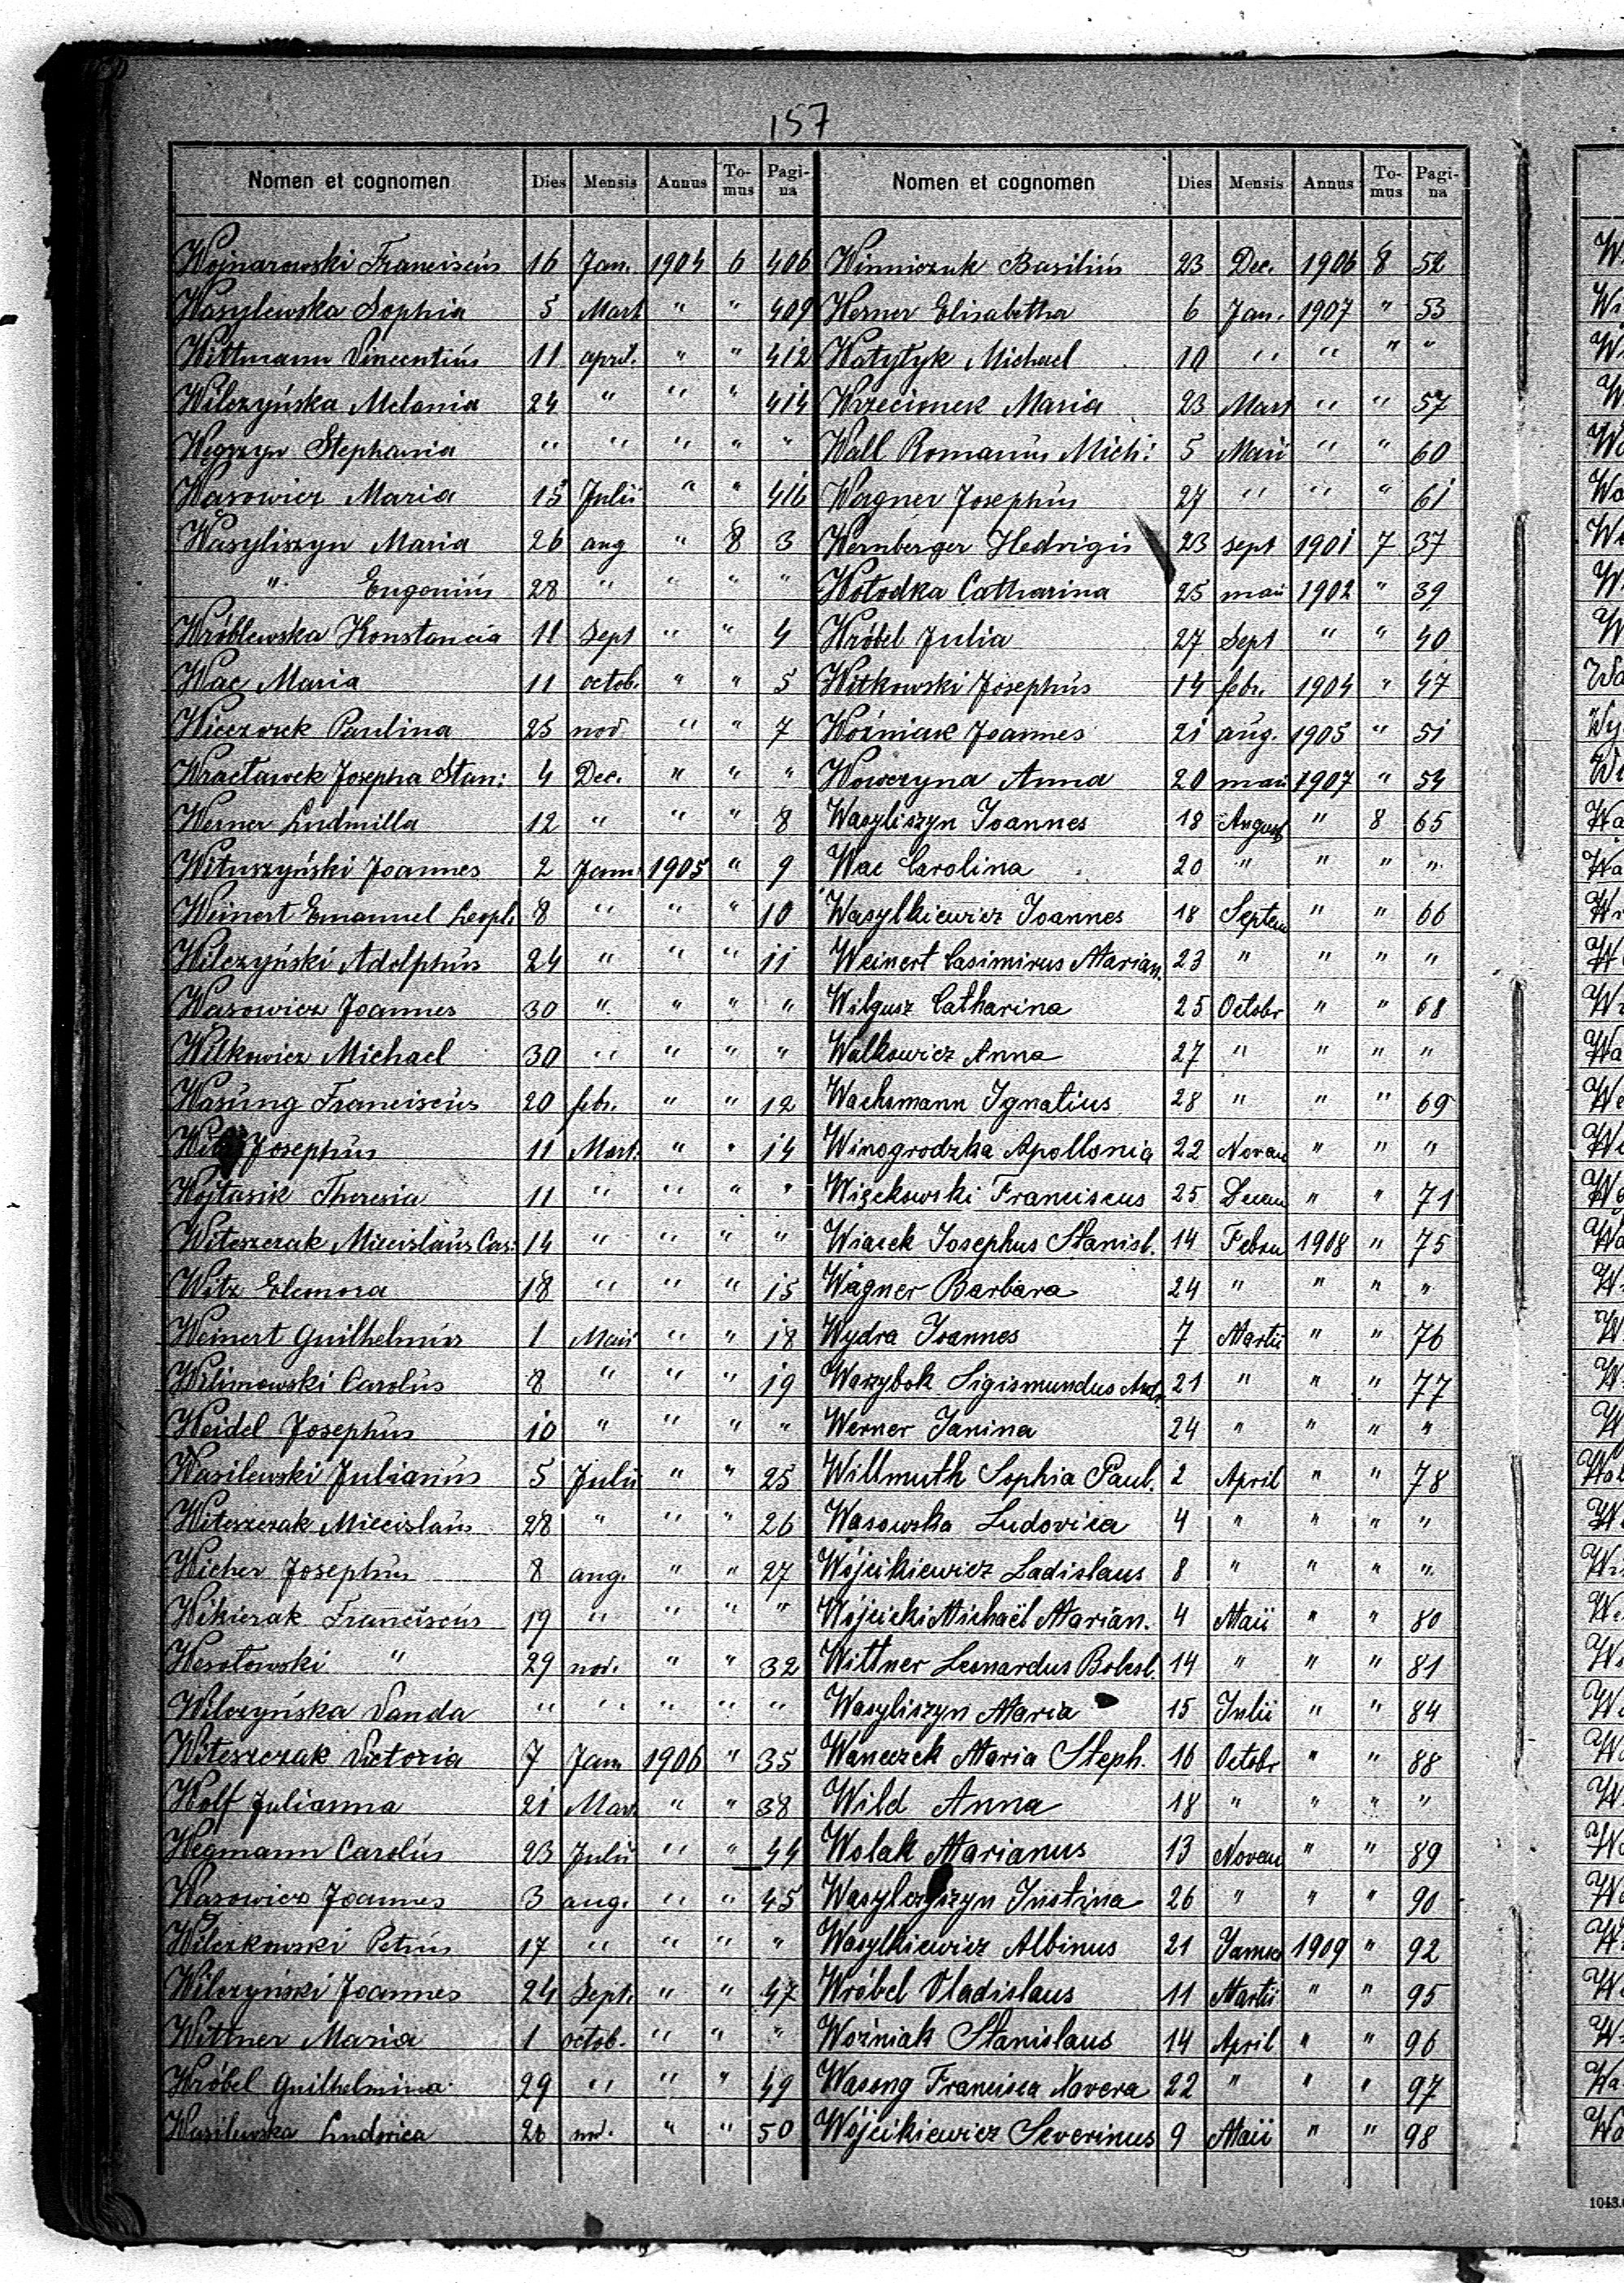 157
Nomen et cognomen Dies Mensis Annus To-mus Pagi-na
Wojnarowski Franciscus 16 Jan. 1904 6 406
Wasylewska Sophia 5 Mart " " 409
Wittmann Vincentius 11 april. " " 412
Wilczyńska Melania 24 " " " 414
Węgrzyn Stephania " " " " "
Wąsowicz Maria 15 Julii " " 416
Wasyliszyn Maria 26 aug " 8 3
" Eugenius 28 " " " "
Wróblewska Konstancia 11 Sept " " 4
Wac Maria 11 octob. " " 5
Wieczorek Paulina 25 nov " " 7
Wracławek Josepha Stan: 4 Dec. " " "
Werner Ludmilla 12 " " " 8
Wituszyński Joannes 2 Jann 1905 " 9
Weinert Emanuel Leopl. 8 " " " 10
Wilczyński Adolphus 24 " " " 11
Wąsowicz Joannes 30 " " " "
Wilkowicz Michael 30 " " " "
Wasung Franciscus 20 febr. " " 12
Josephus 11 Mart. " " 14
Wojtasik Theresia 11 " " " "
Witeszczak Miecislaus Cas: 14 " " " "
Witz Eleonora 18 " " " 15
Weinert Guilhelmus 1 Maii " " 18
Wilimowski Carolus 8 " " " 19
Weidel Josephus 10 " " " "
Wasilewski Julianus 5 Julii " " 25
Witeszczak Miecislaus 28 " " " 26
Wicher Josephus 8 aug. " " 27
Wikierak Franciscus 19 " " " "
Wesołowski " 29 nov. " " 32
Wilczyńska Vanda " " " " "
Witeszczak Victoria 7 Jann 1906 " 35
Wolf Julianna 21 Mart " " 38
Wegmann Carolus 23 Julii " " 44
Wąsowicz Joannes 3 aug. " " 45
Wilczkowski Petrus 17 " " " "
Wilczyński Joannes 24 Sept. " " 47
Wittner Maria 1 octob. " " "
Wróbel Guilhelmina 29 " " " 49
Wasilewska Ludovica 26 nov. " " 50
Nomen et cognomen Dies Mensis Annus To-mus Pagi-na
Winniczuk Basilius 23 Dec. 1906 8 52
Werner Elisabetha 6 Jan. 1907 " 53
Watytyk Michael 10 " " " "
Wrzecionek Maria 23 Mart " " 57
Wall Romanus Mich: 5 Maii " " 60
Wagner Josephus 27 " " " 61
Wernberger Hedvigis 23 sept 1901 7 37
Wołodka Catharina 25 maii 1902 " 39
Wróbel Julia 27 Sept " " 40
Witkowski Josephus 14 febr. 1904 " 47
Woźniak Joannes 21 aug. 1905 " 51
Wowczyna Anna 20 maii 1907 " 54
Wasyliszyn Joannes 18 August " 8 65
Wac Carolina 20 " " " "
Wasylkiewicz Joannes 18 Septem " " 66
Weinert Casimirus Marian. 23 " " " "
Wilgusz Catharina 25 Octobr " " 68
Walkowicz Anna 27 " " " "
Wachsmann Ignatius 28 " " " 69
Winogrodzka Apollonia 22 Novem " " "
Więckowski Franciscus 25 Decem " " 71
Wiącek Josephus Stanisl. 14 Febru 1908 " 75
Wagner Barbara 24 " " " "
Wydra Joannes 7 Martii " " 76
Warzybok Sigismundus 21 " " " 77
Werner Janina 24 " " " "
Willmuth Sophia Paul. 2 April " " 78
Wasowska Ludovica 4 " " " "
Wójcikiewicz Ladislaus 8 " " " "
Wójcicki Michaël Marian. 4 Maii " " 80
Wittner Leonardus Bolesl. 14 " " " 81
Wasyliszyn Maria 15 Julii " " 84
Waneczek Maria Steph. 16 Octobr " " 88
Wild Anna 18 " " " "
Wolak Marianus 13 Novem " " 89
Justina 26 " " " 90
Wasylkiewicz Albinus 21 1909 " 92
Wróbel Vladislaus 11 Martii " " 95
Woźniak Stanislaus 14 April " " 96
Wasong Francisca Xavera 22 " " " 97
Wójcikiewicz Severinus 9 Maii " " 98